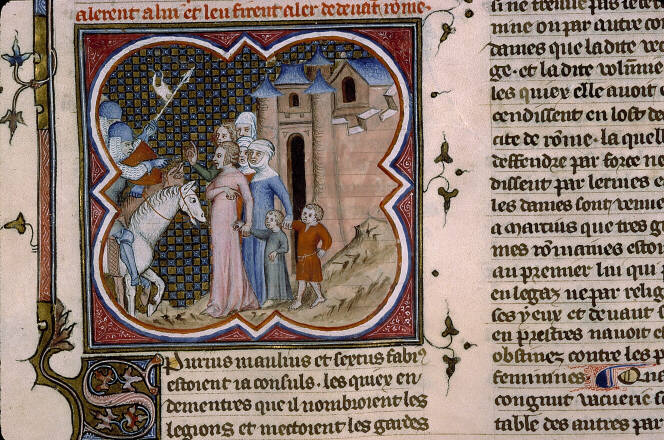 alerent a lui et leu firent aler de deuant rōme.
Purius manlius et sextus fabiꝰ
estoient ia consuls. les quiex en
dementres que il nombroient les
legions et mectoient les gardes
mine ou par autre co
dames que la dite ve
ge. et la dite volū̄ie
les quiex elle auoit e
cendissent en lost de
cite de rōme. la quell
deffendre par force ne
dissent par lermes e
les dames sont venue
a marcius que tres g
mes rōmaines estoi
au premier lui qui
en legaz ne par relig
ses yeux et deuant s
en prestres nauoit e
obstinez contre les p
feminines.
congnut
table des autres par